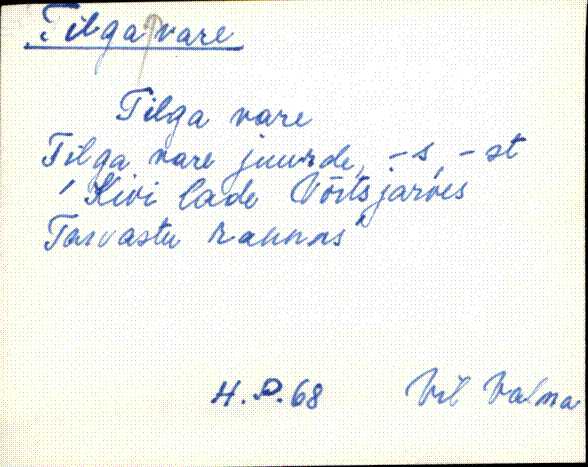 Tilga vare
Tilga vare
Tilga vare juurde, -s, -st
'Kivi lade Võrtsjärves
Tarvastu rannas'
H.P.68 Vil Valma